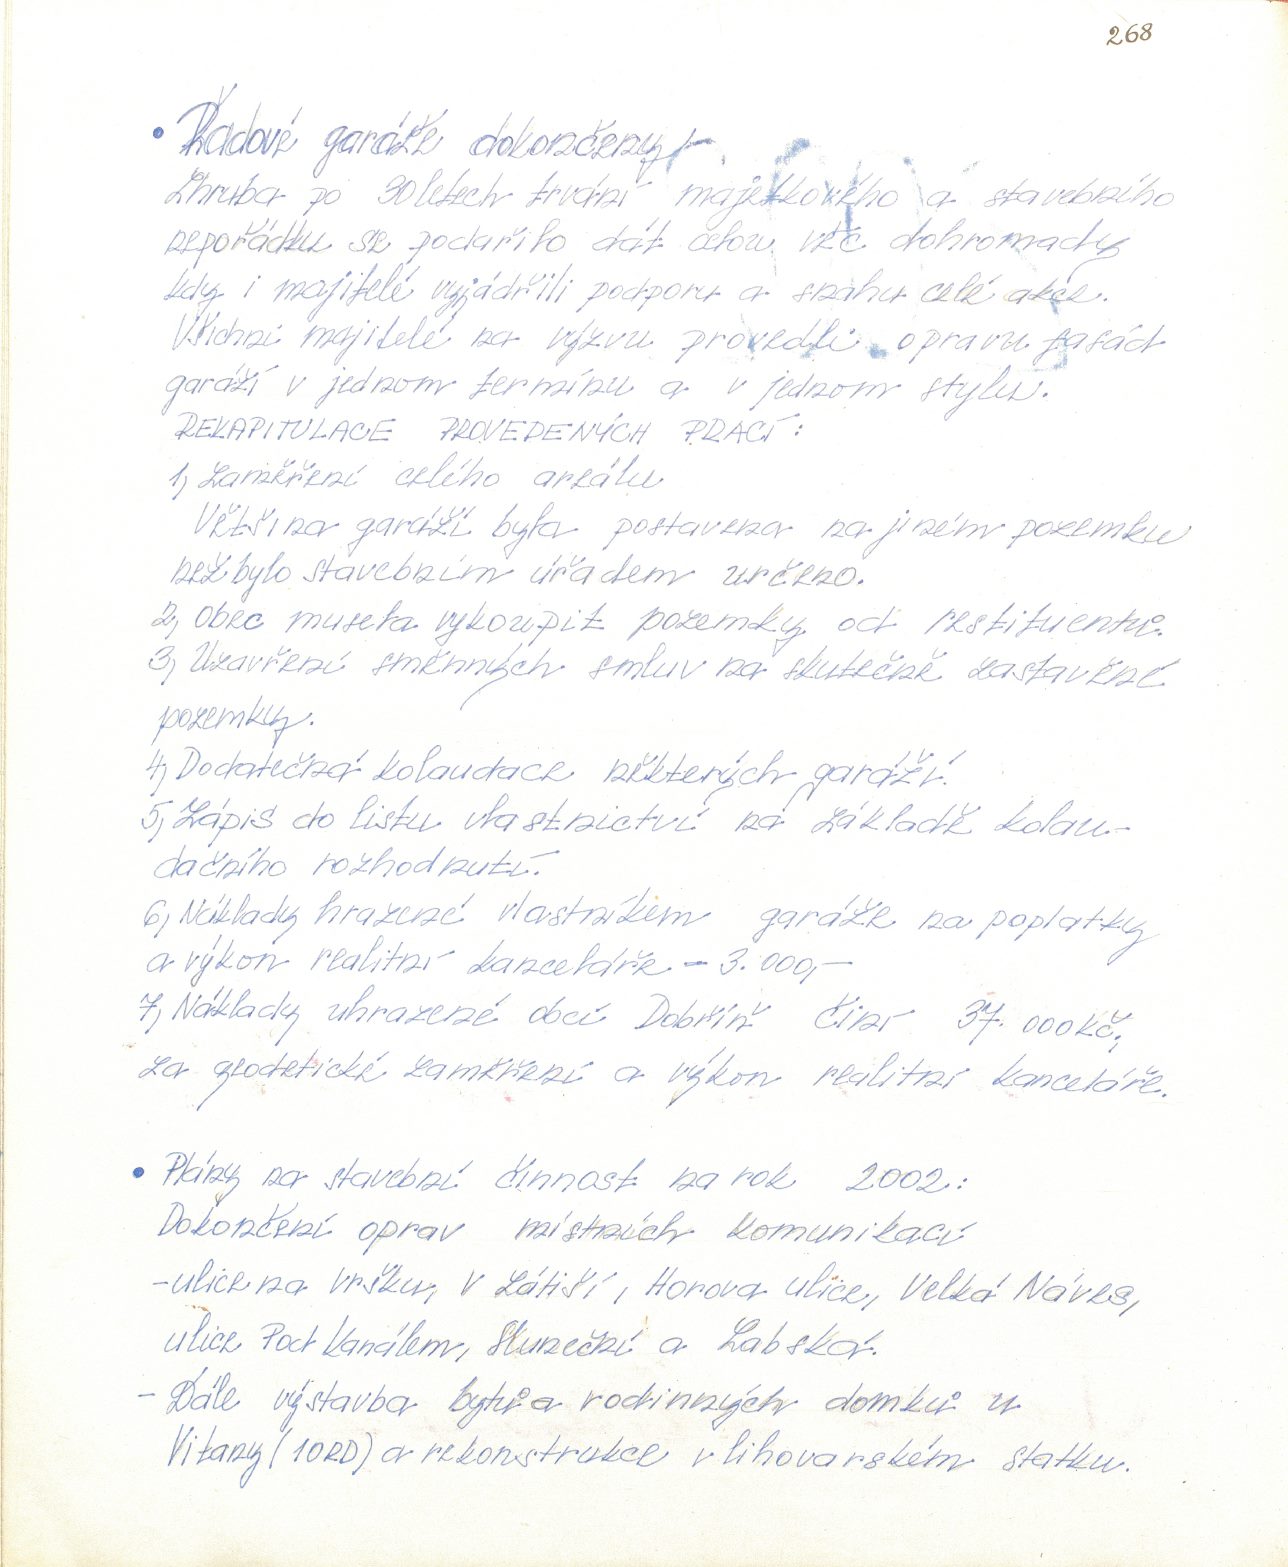 268
• Řadové garáže dokončeny.
Zhruba po 30 letech trvání majetkového a stavebního
nepořádku se podařilo dát celou věc dohromady
kdy i majitelé vyjádřili podporu a snahu celé akce.
Všichni majitelé na výzvu provedli opravu fasád
garáží v jednom termínu a v jednom stylu.
REKAPITULACE PROVEDENÝCH PRACÍ:
1, Zaměření celého areálu
Většina garáží byla postavena na jiném pozemku
než bylo stavebním úřadem určeno.
2, Obec musela vykoupit pozemky od restituentů.
3, Uzavření směnných smluv na skutečně zastavěné
pozemky.
4, Dodatečná kolaudace některých garáží.
5, Zápis do listu vlastnictví na základě kolau-
dačního rozhodnutí.
6, Náklady hrazené vlastníkem garáže na poplatky
a výkon realitní kanceláře - 3.000,-
7, Náklady uhrazené obcí Dobříň činí 37.000 kč,
za geodetické zaměření a výkon realitní kanceláře.
• Plány na stavební činnost na rok 2002:
Dokončení oprav místních komunikací
- ulice na vršku, v Zátiší, Horova ulice, Velká Náves,
ulice Pod Kanálem, Slunečná a Labská.
- Dále výstavba bytů a rodinných domků u
Vitany (10RD) a rekonstrukce v lihovarském statku.